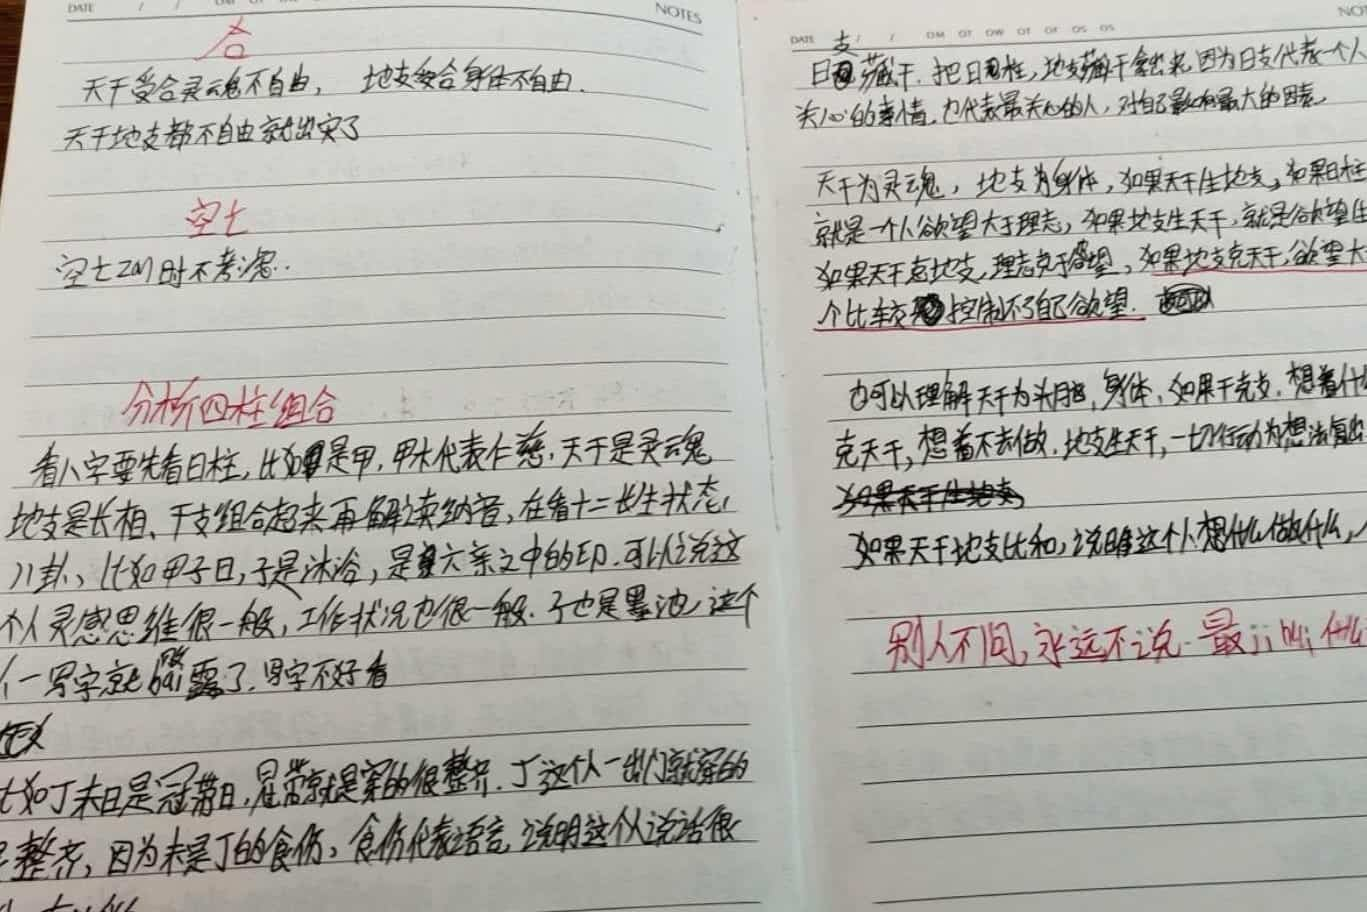 DATE / / NOTES
合
天干受合灵魂不自由， 地支受合身体不自由.
天干地支都不自由就出灾了
空亡
空亡 时不考虑..
分析四柱组合
看八字要先看日柱，比如是甲，甲木代表仁慈.天干是灵魂
地支是长相、干支组合起来再解读纳音，在看十二长生状态，
八卦、比如甲子日，子是沐浴，是六亲之中的印.可以说这
个人灵感思维很一般，工作状况也很一般.子也是墨池，这个
人一写字就bai露了.写字不好看
比如丁未日是冠带日，冠带就是穿的很整齐.丁这个人一出门就穿的
整齐，因为未是丁的食伤，食伤代表语言，说明这个人说话很
DATE / / NOTES
日支藏干.把日柱，地支藏干拿出来.因为日支代表一个人
关心的事情.也代表最关心的人，对自己影响最大的因素，
天干为灵魂，地支为身体，如果天干生地支，如果日柱
就是一个人欲望大于理志，如果地支生天干，就是欲望
如果天干克地支，理志克于欲望，如果地支克天干，欲望大
个比较控制不了自己欲望.
也可以理解天干为头脑，身体.如果干克支.想着什
克天干，想着不去做.地支生天干，一切行动为想法
如果天干生地支
如果天干地支比和，说明这个人想什么做什么，
别人不问，永远不说.最